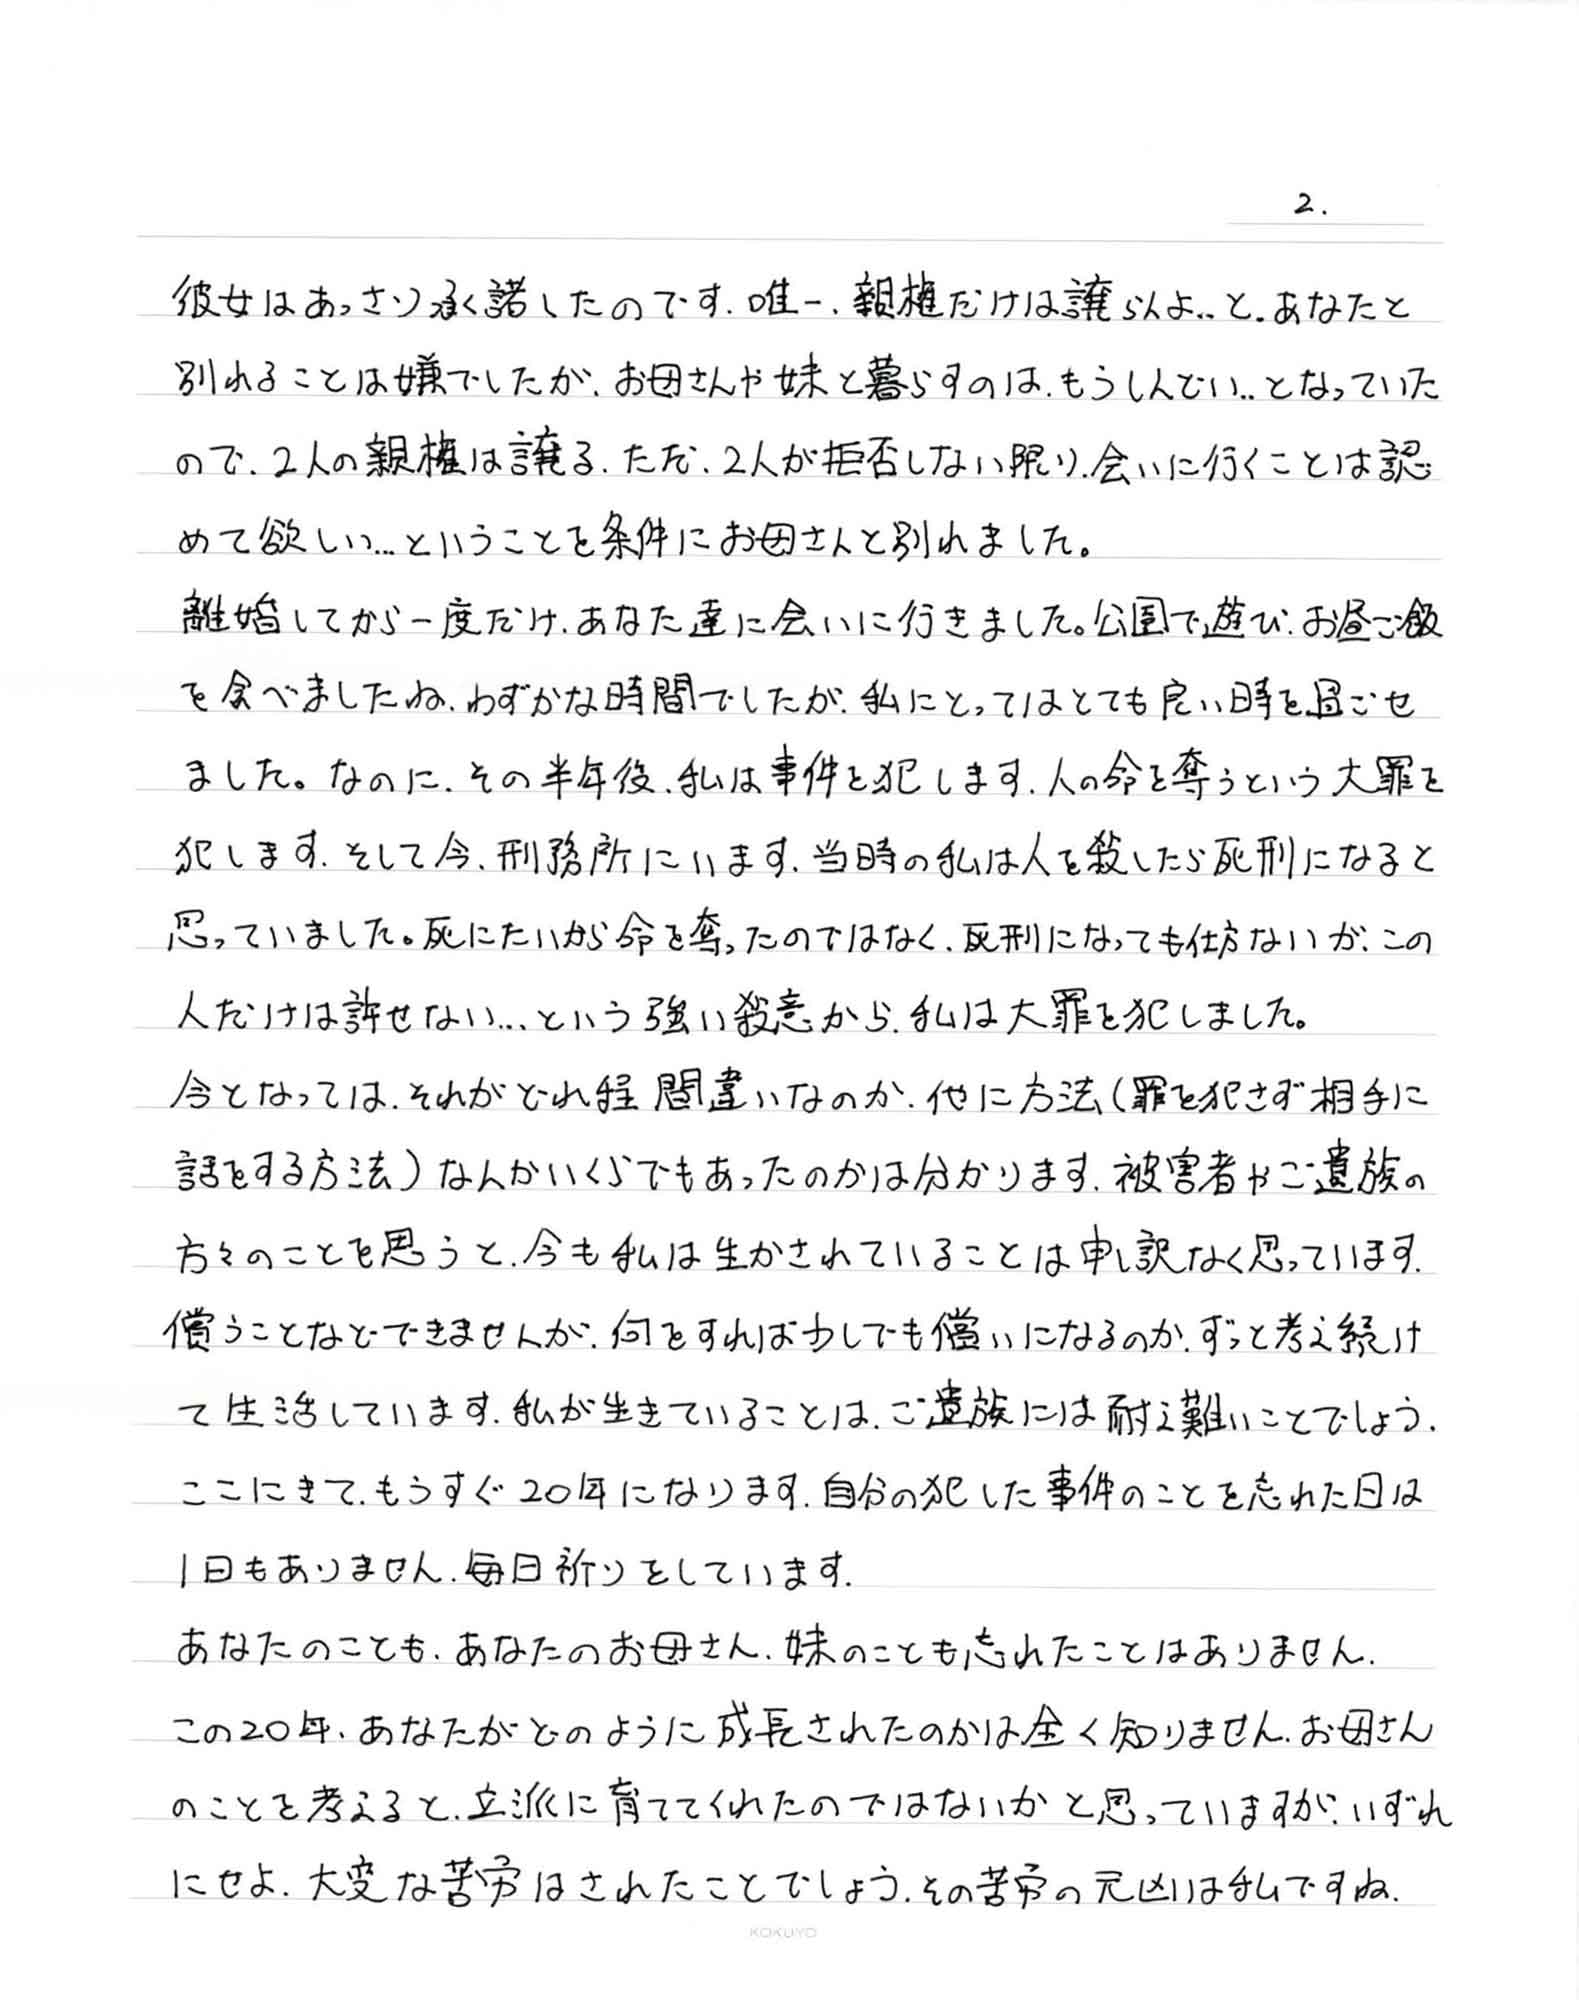 2.
彼女はあっさり承諾したのです.唯一、親権だけは譲らんよ..と.あなたと
別れることは嫌でしたが、お母さんや妹と暮らすのは、もうしんどい..となっていた
ので、2人の親権は譲る.ただ、2人が拒否しない限り、会いに行くことは認
めて欲しい…ということを条件にお母さんと別れました。
離婚してから一度だけ、あなた達に会いに行きました。公園で遊び、お昼ご飯
を食べましたね.わずかな時間でしたが、私にとってはとても良い時を過ごせ
ました。なのに、その半年後、私は事件を犯します.人の命を奪うという大罪を
犯します.そして今、刑務所にいます.当時の私は人を殺したら死刑になると
思っていました。死にたいから命を奪ったのではなく、死刑になっても仕方ないが、この
人だけは許せない…という強い殺意から、私は大罪を犯しました。
今となっては、それがどれ程間違いなのか、他に方法(罪を犯さず相手に
話をする方法)なんかいくらでもあったのかは分かります.被害者やご遺族の
方々のことを思うと、今も私は生かされていることは申し訳なく思っています.
償うことなどできませんが、何をすれば少しでも償いになるのか、ずっと考え続け
て生活しています.私が生きていることは、ご遺族には耐え難いことでしょう.
ここにきて、もうすぐ20年になります.自分の犯した事件のことを忘れた日は
1日もありません.毎日祈りをしています.
あなたのことも、あなたのお母さん、妹のことも忘れたことはありません.
この20年、あなたがどのように成長されたのかは全く知りません.お母さん
のことを考えると、立派に育ててくれたのではないかと思っていますが、いずれ
にせよ、大変な苦労はされたことでしょう.その苦労の元凶は私ですね.
KOKUYO